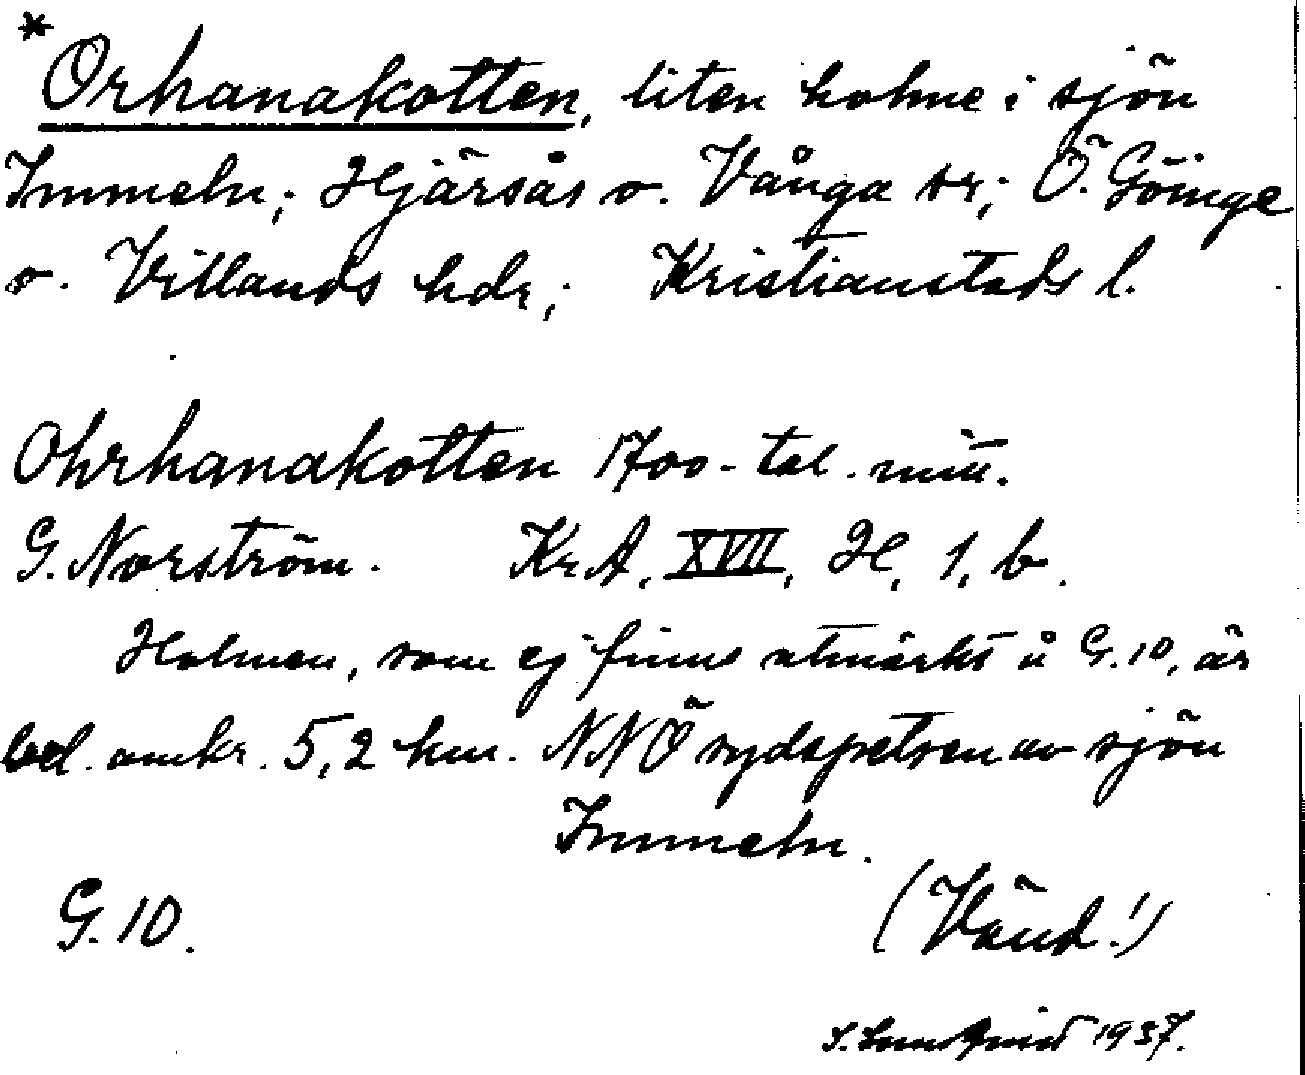 *Orhanakotten, liten holme i sjön
Immeln; Hjärsås o. Vånga sr; Ö. Göinge
o. Villands hdr; Kristianstads l.
Ohrhanakotten 1700-tal.
G. Norström. Kr.A, XVII, H, 1, b.
Holmen, som ej finns utmärkt å G.10, är
bel. omkr. 5,2 km. NNÖ sydspetsen av sjön
Immeln.
G.10.
(Vänd!)
1937.